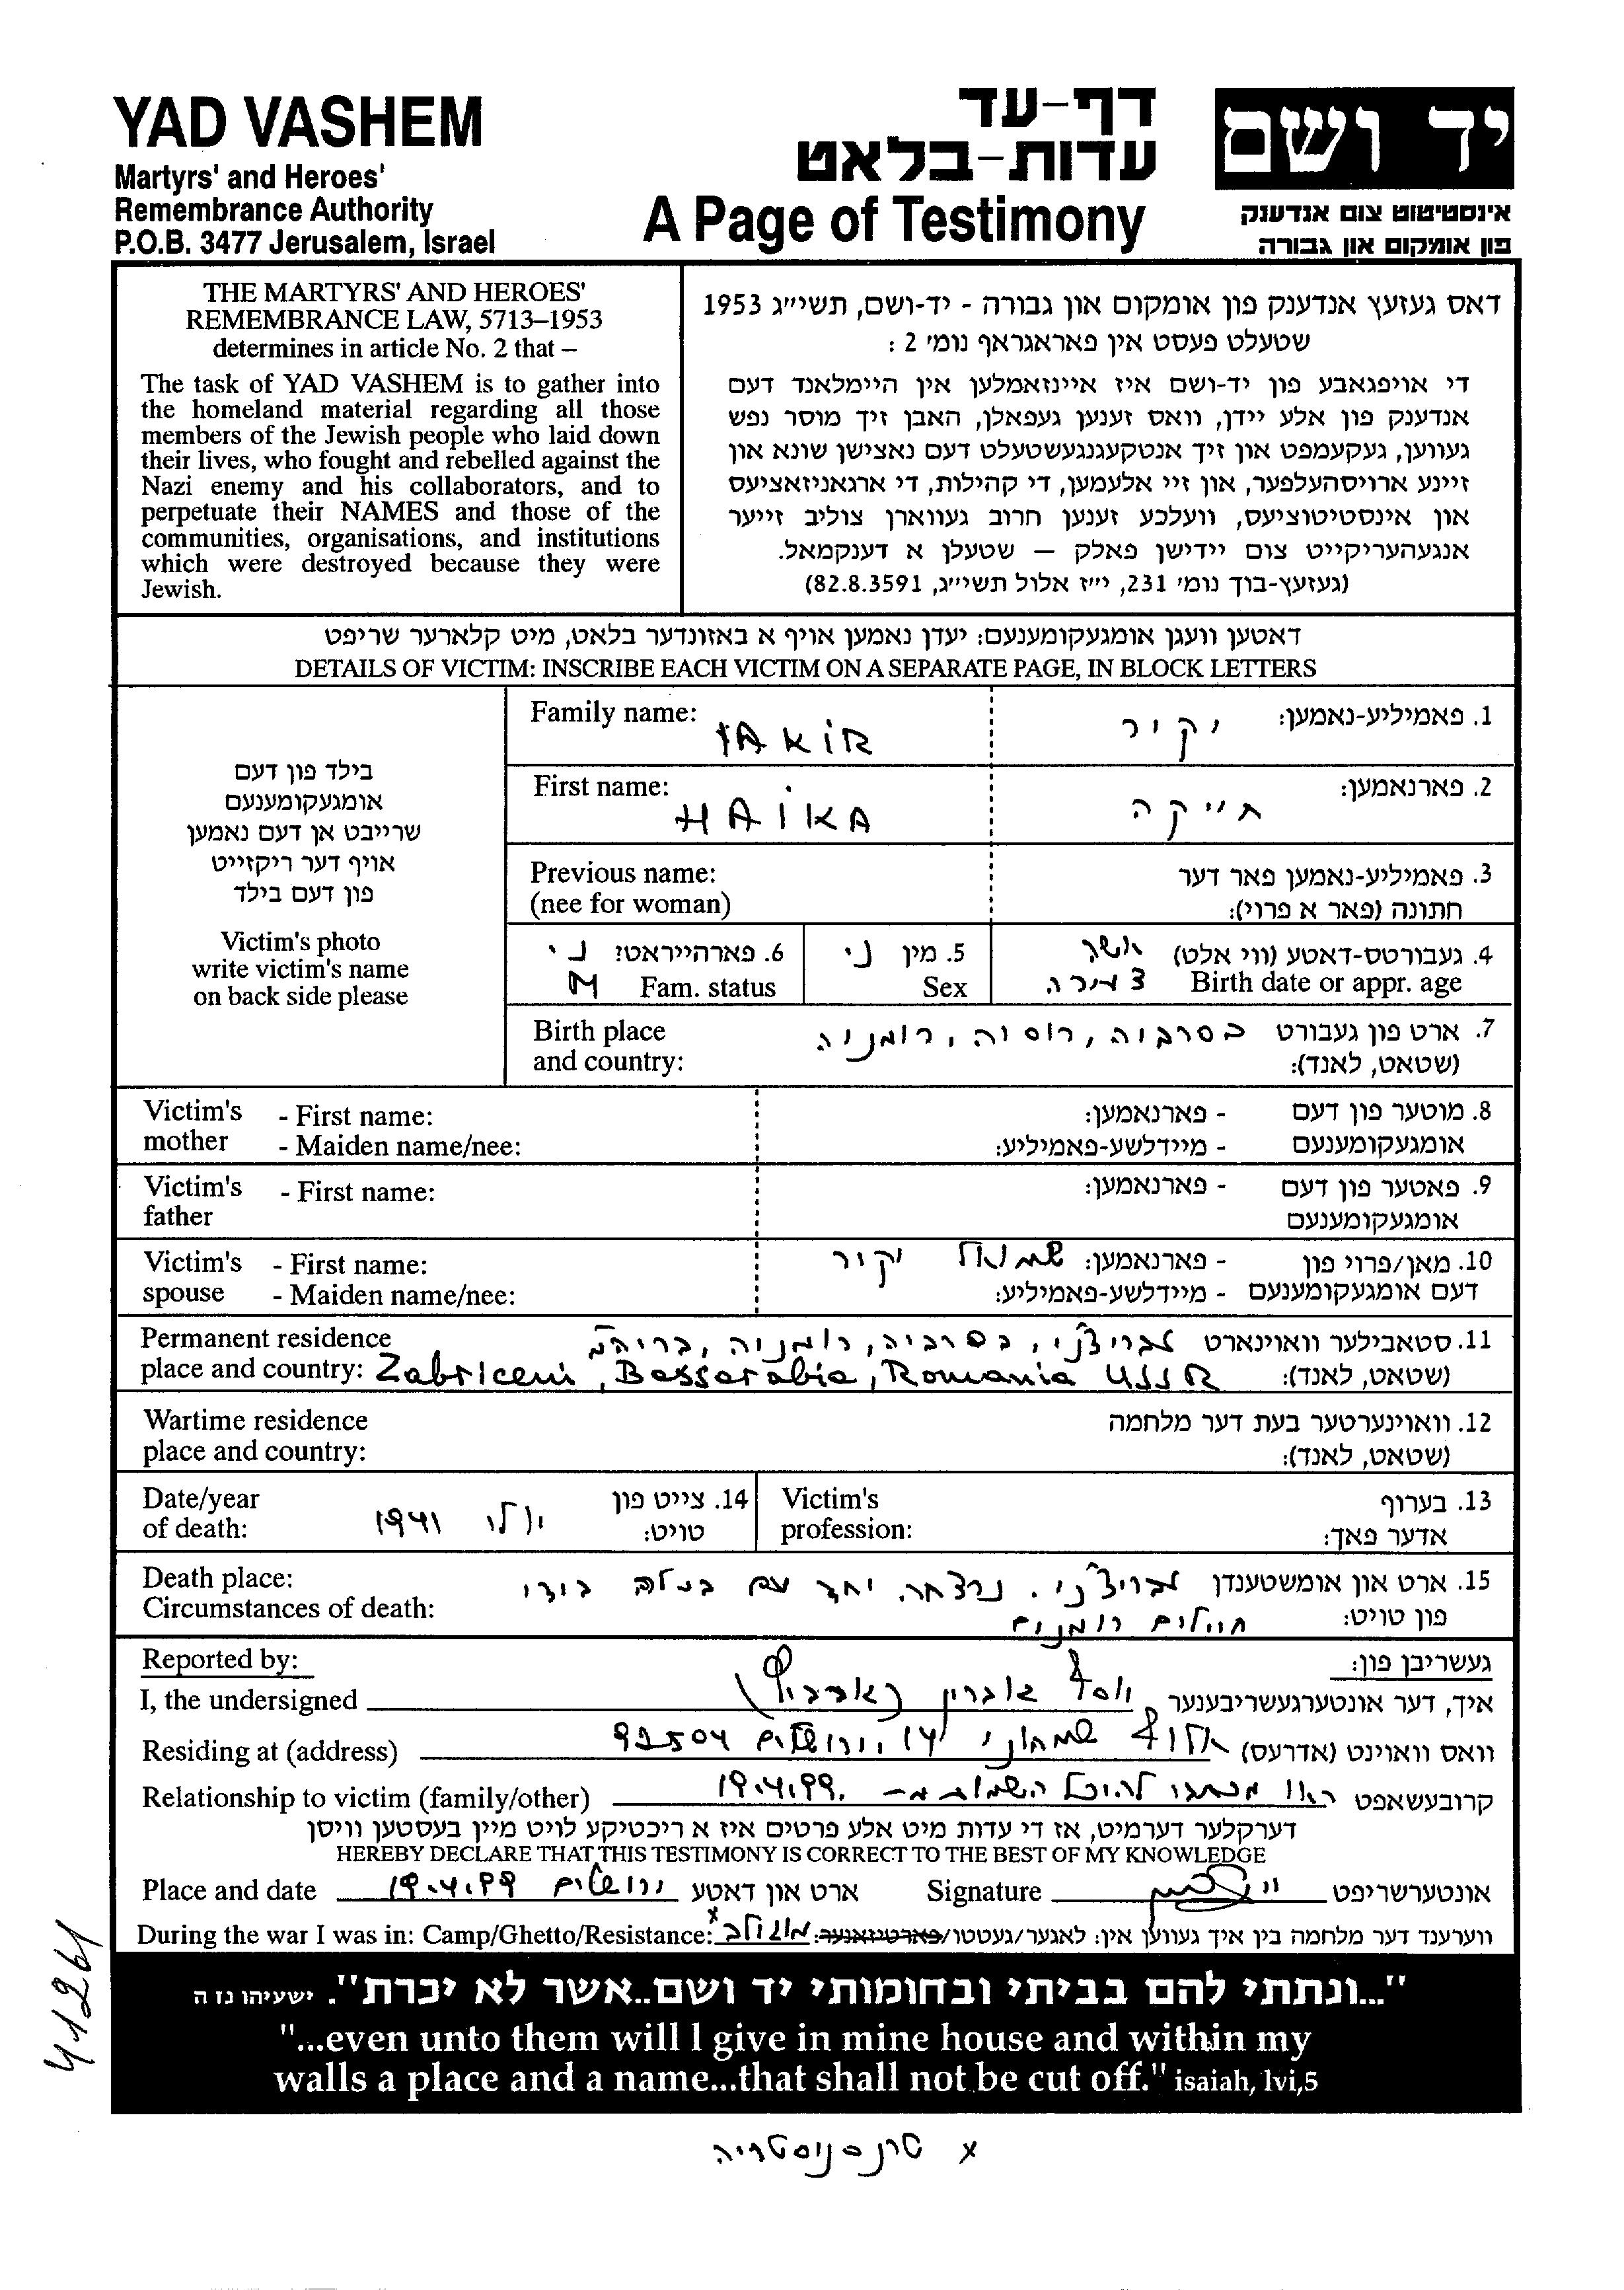 YAD VASHEM
Martyrs' and Heroes'
Remembrance Authority
P.O.B. 3477 Jerusalem, Israel
דף-עד
עדות-בלאט
A Page of Testimony
יד ושם
אינסטיטוט צום אנדענק
פון אומקום און גבורה
THE MARTYRS' AND HEROES'
REMEMBRANCE LAW, 5713–1953
determines in article No. 2 that –
The task of YAD VASHEM is to gather into
the homeland material regarding all those
members of the Jewish people who laid down
their lives, who fought and rebelled against the
Nazi enemy and his collaborators, and to
perpetuate their NAMES and those of the
communities, organisations, and institutions
which were destroyed because they were
Jewish.
דאס געזעץ אנדענק פון אומקום און גבורה - יד-ושם, תשי״ג 1953
שטעלט פעסט אין פאראגראף נומ׳ 2 :
די אויפגאבע פון יד-ושם איז איינזאמלען אין היימלאנד דעם
אנדענק פון אלע יידן, וואס זענען געפאלן, האבן זיך מוסר נפש
געווען, געקעמפט און זיך אנטקעגנגעשטעלט דעם נאצישן שונא און
זיינע ארויסהעלפער, און זיי אלעמען, די קהילות, די ארגאניזאציעס
און אינסטיטוציעס, וועלכע זענען חרוב געווארן צוליב זייער
אנגעהעריקייט צום יידישן פאלק — שטעלן א דענקמאל.
(געזעץ-בוך נומ׳ 231, י״ז אלול תשי״ג, 82.8.3591)
דאטען וועגן אומגעקומענעם: יעדן נאמען אויף א באזונדער בלאט, מיט קלארער שריפט
DETAILS OF VICTIM: INSCRIBE EACH VICTIM ON A SEPARATE PAGE, IN BLOCK LETTERS
בילד פון דעם
אומגעקומענעם
שרייבט אן דעם נאמען
אויף דער ריקזייט
פון דעם בילד
Victim's photo
write victim's name
on back side please
Family name: YAKIR
1. פאמיליע-נאמען: יקיר
First name: HAIKA
2. פארנאמען: חייקה
Previous name:
(nee for woman)
3. פאמיליע-נאמען פאר דער
חתונה (פאר א פרוי):
4. געבורטס-דאטע (ווי אלט) אשה
Birth date or appr. age צעירה
5. מין נ׳
Sex
6. פארהייראט? נ׳
Fam. status M
Birth place
and country:
7. ארט פון געבורט בסרביה, רוסיה, רומניה
(שטאט, לאנד):
Victim's - First name:
mother - Maiden name/nee:
8. מוטער פון דעם - פארנאמען:
אומגעקומענעם - מיידלשע-פאמיליע:
Victim's - First name:
father
9. פאטער פון דעם - פארנאמען:
אומגעקומענעם
Victim's - First name:
spouse - Maiden name/nee:
10. מאן/פרוי פון - פארנאמען: יקיר
דעם אומגעקומענעם - מיידלשע-פאמיליע:
Permanent residence
place and country: Zabriceni, Bessarabia, Romania USSR
11. סטאבילער וואוינארט זבריצ׳ני, בסרביה, רומניה, בריה״מ
(שטאט, לאנד):
Wartime residence
place and country:
12. וואוינערטער בעת דער מלחמה
(שטאט, לאנד):
Date/year
of death:
14. צייט פון יולי 1941
טויט:
Victim's
profession:
13. בערוף
אדער פאך:
Death place:
Circumstances of death:
15. ארט און אומשטענדן זבריצ׳ני. נרצחה יחד עם בעלה בידי
פון טויט: חיילים רומנים
Reported by:
געשריבן פון:
I, the undersigned
איך, דער אונטערגעשריבענער יוסף
Residing at (address)
וואס וואוינט (אדרעס) 14 ירושלים 92504
Relationship to victim (family/other)
קרובעשאפט ראו מכתבו להיכל השמות מ- 19.4.99.
דערקלער דערמיט, אז די עדות מיט אלע פרטים איז א ריכטיקע לויט מיין בעסטען וויסן
HEREBY DECLARE THAT THIS TESTIMONY IS CORRECT TO THE BEST OF MY KNOWLEDGE
Place and date ירושלים 19.4.99 ארט און דאטע
Signature אונטערשריפט
During the war I was in: Camp/Ghetto/Resistance: ווערענד דער מלחמה בין איך געווען אין: לאגער/געטטו/פארטיזאנער:
"...ונתתי להם בביתי ובחומותי יד ושם..אשר לא יכרת". ישעיהו נז ה
"...even unto them will I give in mine house and within my
walls a place and a name...that shall not be cut off." isaiah, lvi,5
x טרנסניסטריה
41261